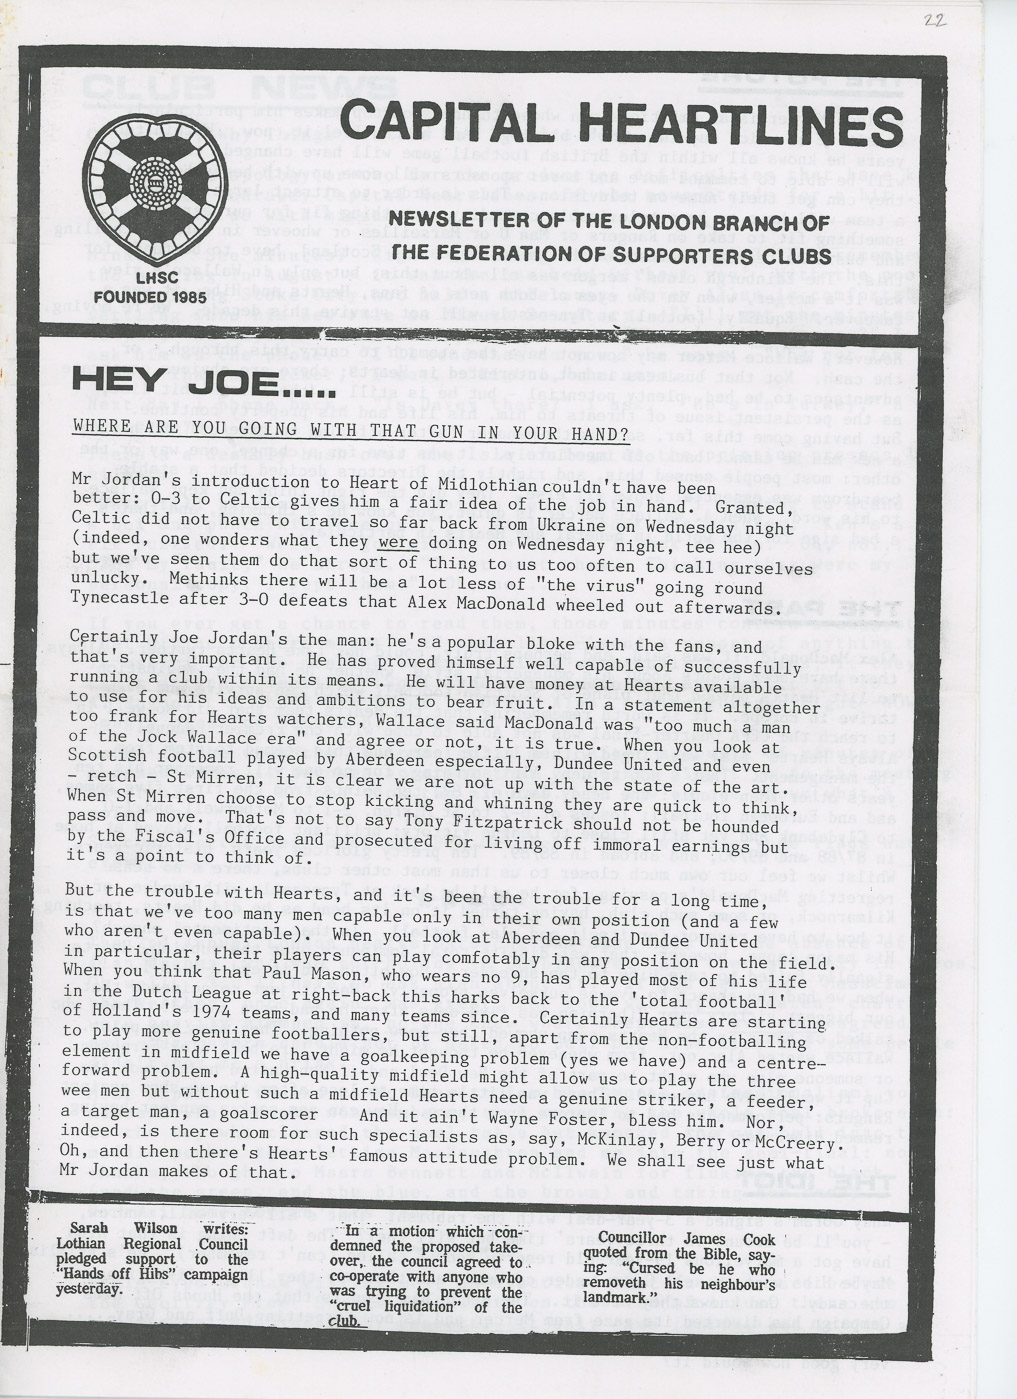 22
CAPITAL HEARTLINES
NEWSLETTER OF THE LONDON BRANCH OF
THE FEDERATION OF SUPPORTERS CLUBS
LHSC
FOUNDED 1985
HEY JOE.....
WHERE ARE YOU GOING WITH THAT GUN IN YOUR HAND?
Mr Jordan's introduction to Heart of Midlothian couldn't have been
better: 0-3 to Celtic gives him a fair idea of the job in hand. Granted,
Celtic did not have to travel so far back from Ukraine on Wednesday night
(indeed, one wonders what they were doing on Wednesday night, tee hee)
but we've seen them do that sort of thing to us too often to call ourselves
unlucky. Methinks there will be a lot less of "the virus" going round
Tynecastle after 3-0 defeats that Alex MacDonald wheeled out afterwards.
Certainly Joe Jordan's the man: he's a popular bloke with the fans, and
that's very important. He has proved himself well capable of successfully
running a club within its means. He will have money at Hearts available
to use for his ideas and ambitions to bear fruit. In a statement altogether
too frank for Hearts watchers, Wallace said MacDonald was "too much a man
of the Jock Wallace era" and agree or not, it is true. When you look at
Scottish football played by Aberdeen especially, Dundee United and even
- retch - St Mirren, it is clear we are not up with the state of the art.
When St Mirren choose to stop kicking and whining they are quick to think,
pass and move. That's not to say Tony Fitzpatrick should not be hounded
by the Fiscal's Office and prosecuted for living off immoral earnings but
it's a point to think of.
But the trouble with Hearts, and it's been the trouble for a long time,
is that we've too many men capable only in their own position (and a few
who aren't even capable). When you look at Aberdeen and Dundee United
in particular, their players can play comfotably in any position on the field.
When you think that Paul Mason, who wears no 9, has played most of his life
in the Dutch League at right-back this harks back to the 'total football'
of Holland's 1974 teams, and many teams since. Certainly Hearts are starting
to play more genuine footballers, but still, apart from the non-footballing
element in midfield we have a goalkeeping problem (yes we have) and a centre-
forward problem. A high-quality midfield might allow us to play the three
wee men but without such a midfield Hearts need a genuine striker, a feeder,
a target man, a goalscorer And it ain't Wayne Foster, bless him. Nor,
indeed, is there room for such specialists as, say, McKinlay, Berry or McCreery.
Oh, and then there's Hearts' famous attitude problem. We shall see just what
Mr Jordan makes of that.
Sarah Wilson writes:
Lothian Regional Council
pledged support to the
"Hands off Hibs" campaign
yesterday.
In a motion which con-
demned the proposed take-
over, the council agreed to
co-operate with anyone who
was trying to prevent the
"cruel liquidation" of the
club.
Councillor James Cook
quoted from the Bible, say-
ing: "Cursed be he who
removeth his neighbour's
landmark."